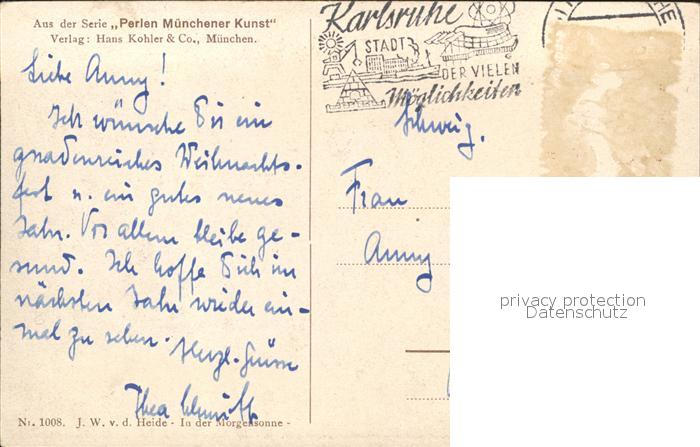 Aus der Serie „Perlen Münchener Kunst“
Verlag: Hans Kohler & Co., München.
Liebe Anny!
Ich wünsche Dir ein
gnadenreiches Weihnachts-
fest u. ein gutes neues
Jahr. Vor allem bleibe ge-
sund. Ich hoffe Dich im
nächsten Jahr wieder ein-
mal zu sehen. Herzl. Grüsse
Thea
Nr. 1008. J. W. v. d. Heide - In der Morgensonne -
Karlsruhe
STADT
DER VIELEN
Möglichkeiten
Schweiz.
Frau
Anny
privacy protection
Datenschutz